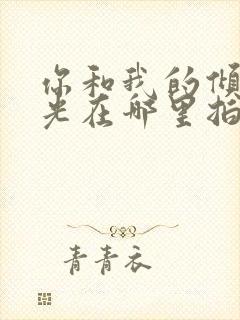 你和我的倾
光在哪里拍
青青衣